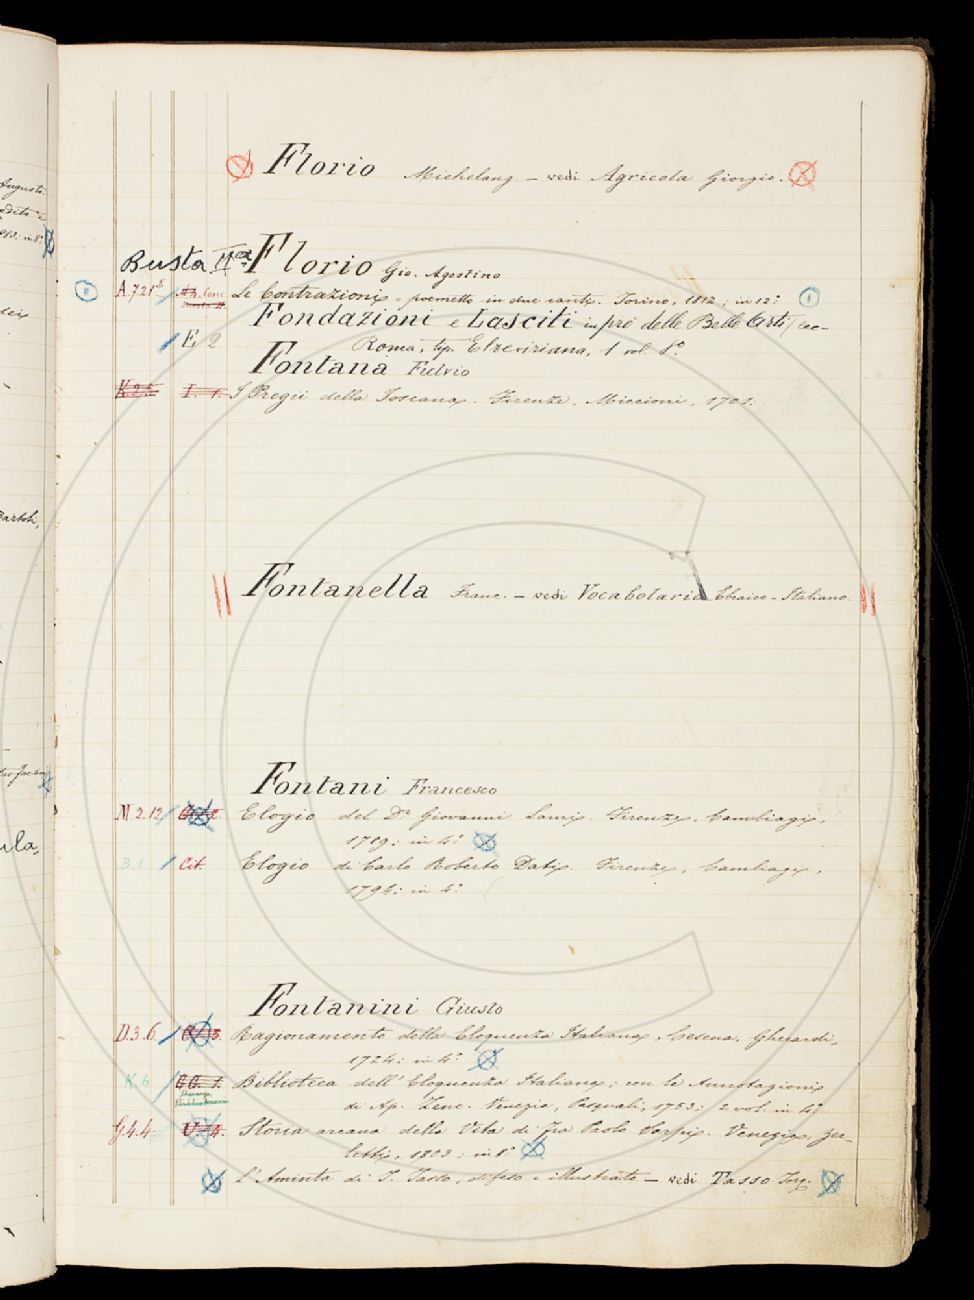 Florio Michelang – vedi Agricola Giorgio.
Busta IIᵃ Florio Gio. Agostino
A.721 Le Contrazioni, poemetto in due canti. Torino, 1812; in 12°
Fondazioni e Lasciti in pro delle Belle Arti
E. 2 Roma, tip. Elzeviriana, 1 vol. 8°
Fontana Fulvio
K.2.5 I. 1. I Pregii della Toscana. Firenze, Miccioni, 1701.
Fontanella Franc. – vedi Vocabolario Ebraico-Italiano.
Fontani Francesco
M 2.12 Elogio del Dr Giovanni Lami. Firenze, Cambiagi,
1789; in 4°
B 1 Cit. Elogio di Carlo Roberto Dati. Firenze, Cambiagi,
1794; in 4°
Fontanini Giusto
D.3.6. Ragionamento della Eloquenza Italiana, Cesena, Gherardi,
1724; in 4°
K 6 Biblioteca dell'Eloquenza Italiana; con le Annotazioni
di Ap. Zeno. Venezia, Pasquali, 1753; 2 vol. in 4°
G.4.4 Storia arcana della Vita di Fra Paolo Sarpi. Venezia, Zer-
letti, 1803; in 8°
L'Aminta di T. Tasso, difeso e illustrato – vedi Tasso Torq.